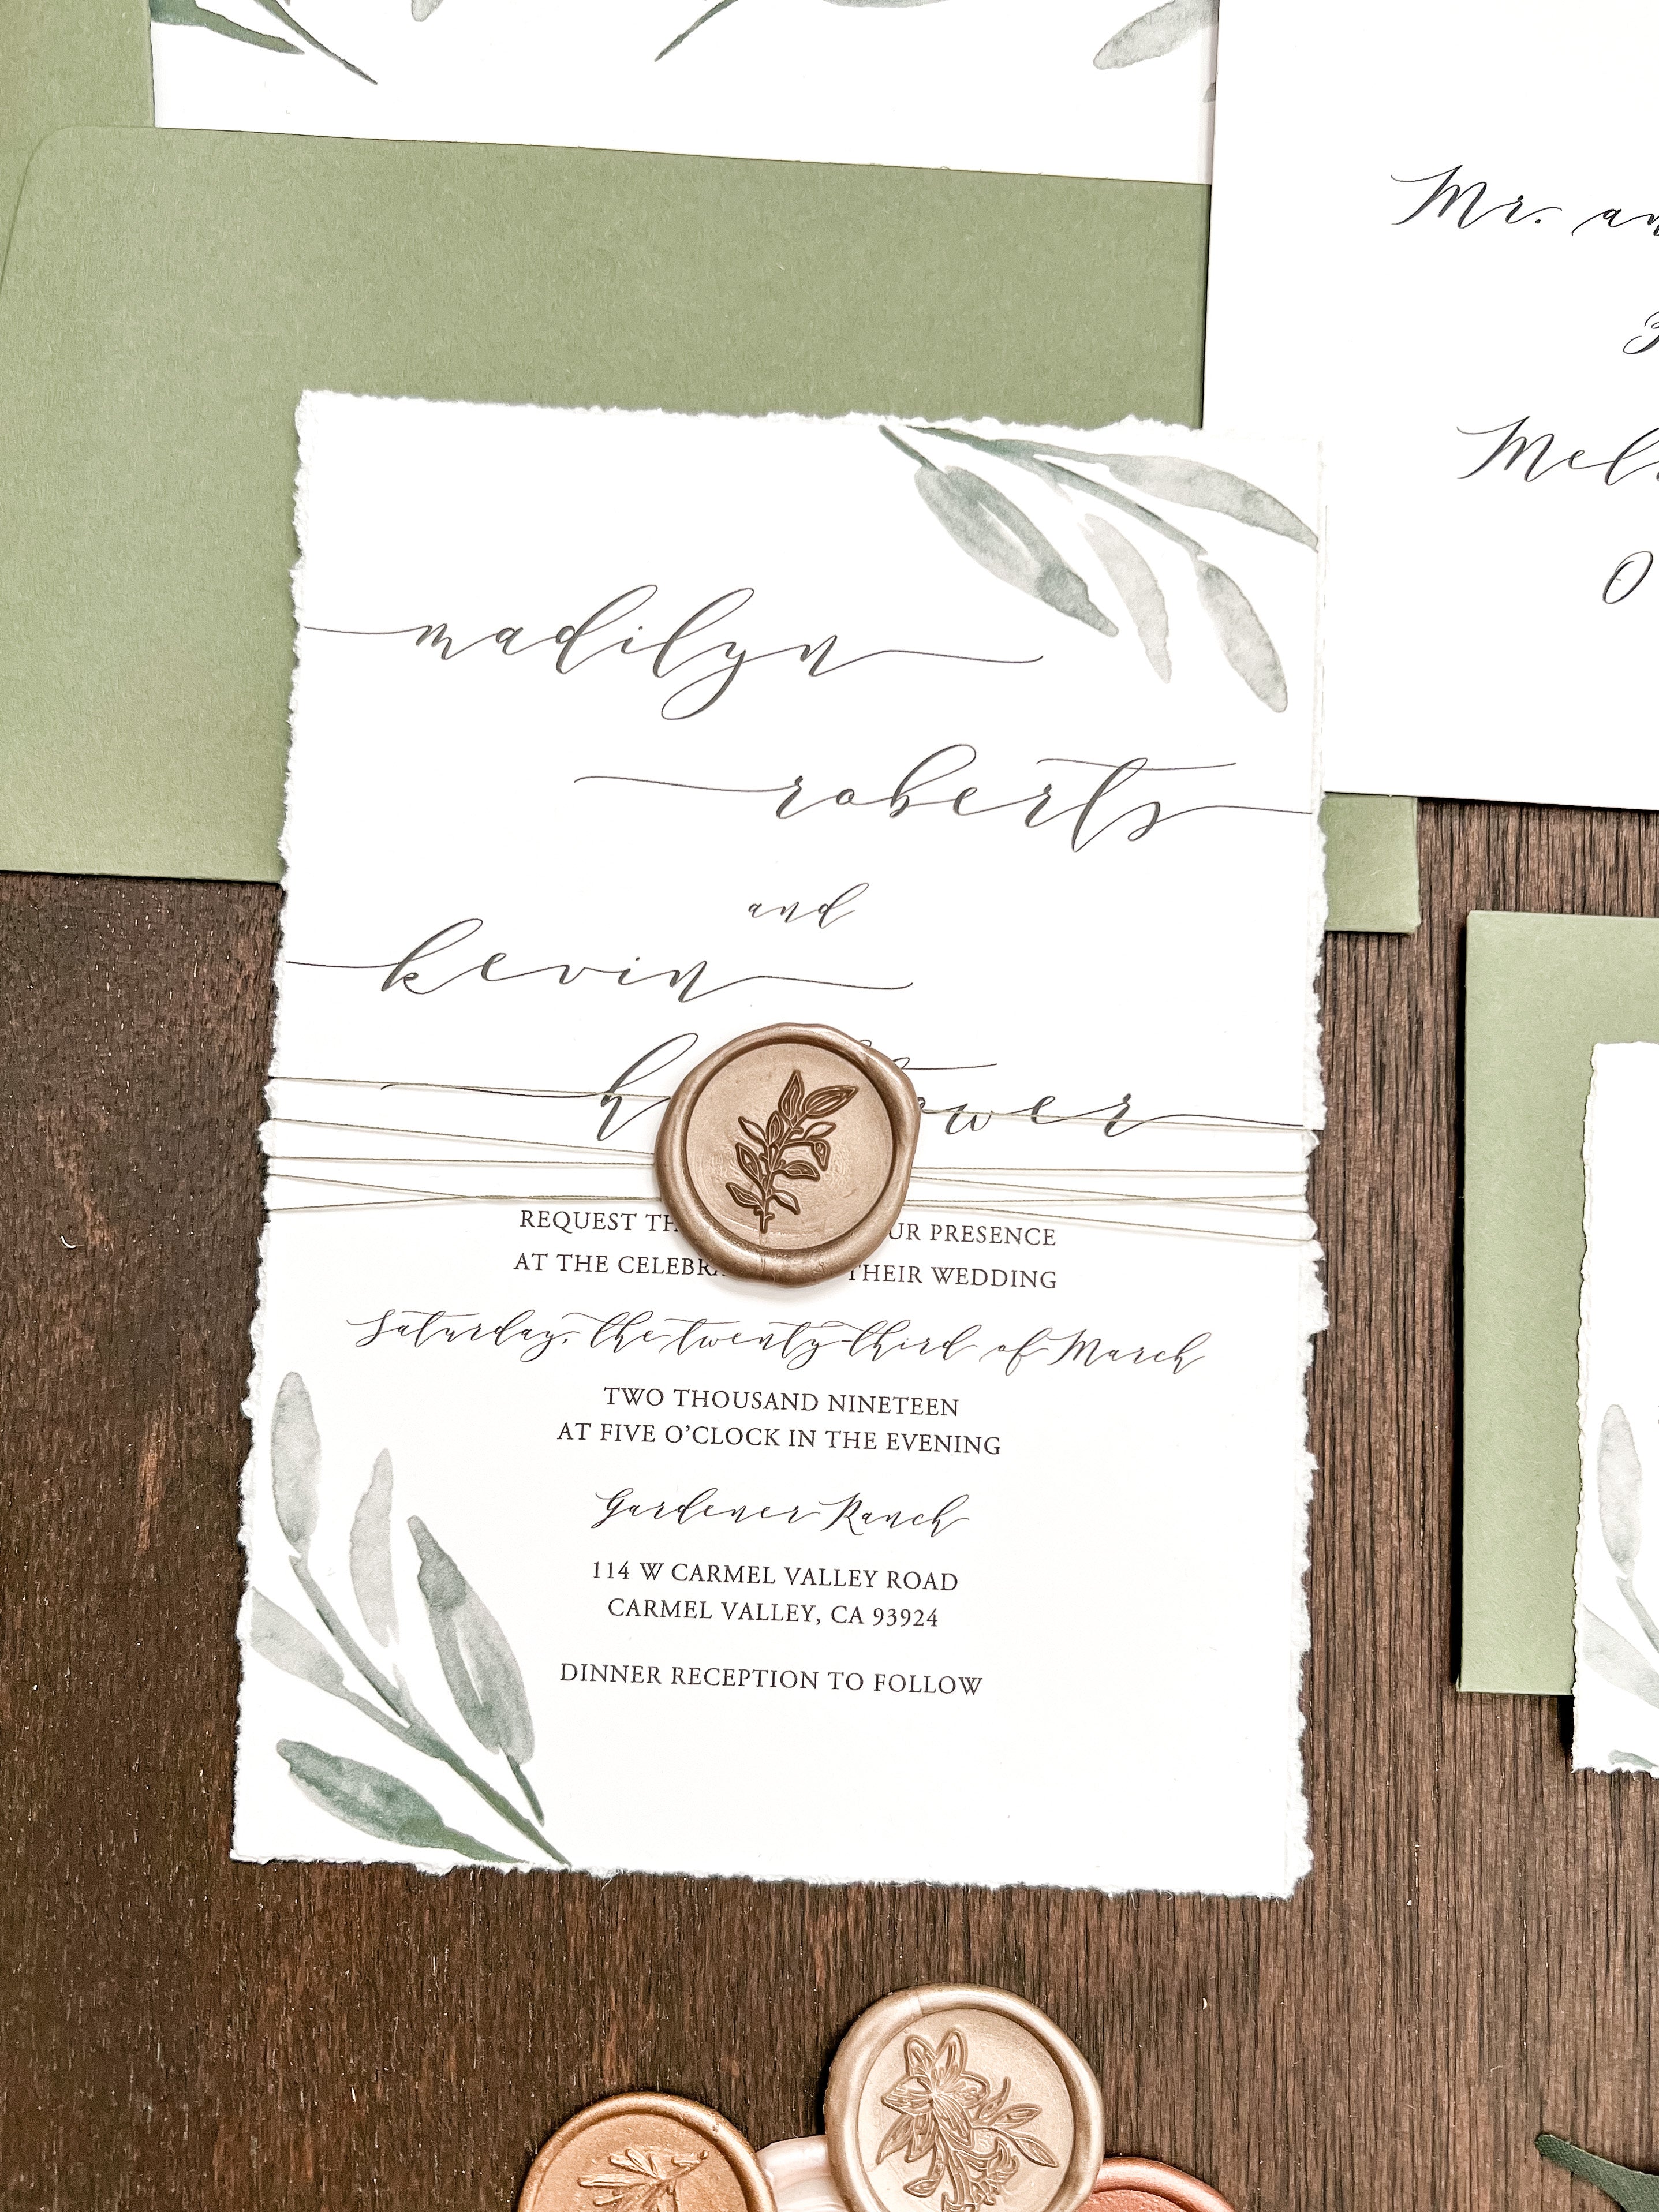 Mr.
madilyn
roberts
and
kevin
REQUEST PRESENCE
AT THE THEIR WEDDING
Saturday, the twenty-third of March
TWO THOUSAND NINETEEN
AT FIVE O'CLOCK IN THE EVENING
Gardener Ranch
114 W CARMEL VALLEY ROAD
CARMEL VALLEY, CA 93924
DINNER RECEPTION TO FOLLOW